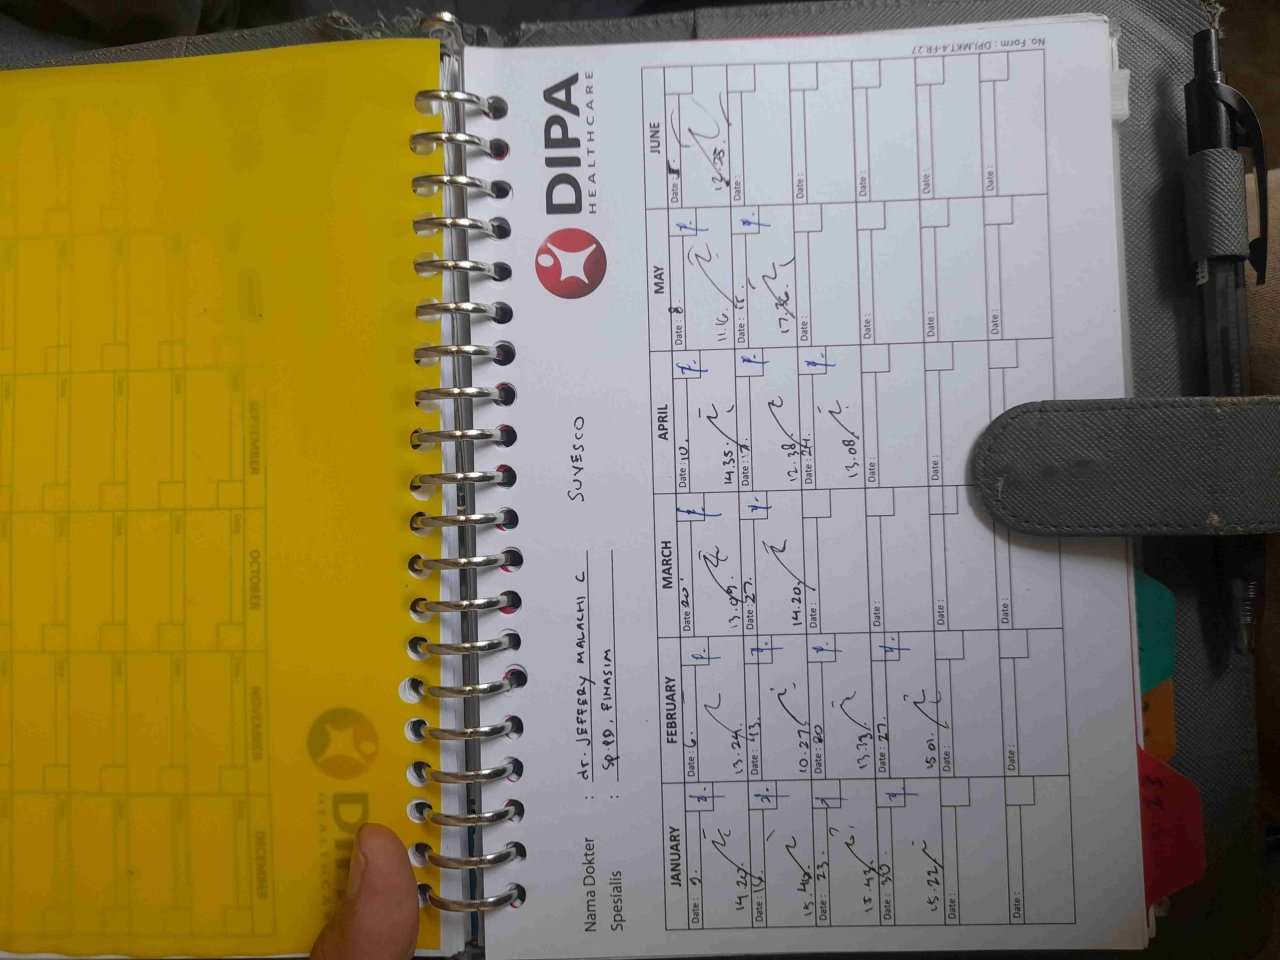 DIPA
HEALTHCARE
Nama Dokter : dr. JEFFERY MALACHI C SUYESCO
Spesialis : Sp.PD, FINASIM
JANUARY FEBRUARY MARCH APRIL MAY JUNE
Date : 9. Date : 6. Date : 20 Date : 10. Date : 8 Date : 5.
14.20. 13.24. 13.09. 14.35. 11.16. 12.35.
Date : 16. Date : 13. Date : 27. Date : 17. Date : 15. Date :
15.40. 10.27. 14.20. 12.38. 17.36.
Date : 23. Date : 20 Date : Date : 24. Date : Date :
15.43. 13.33. 13.08.
Date : 30. Date : 27. Date : Date : Date : Date :
15.22. 15.01.
Date : Date : Date : Date : Date : Date :
Date : Date : Date : Date : Date :
No. Form : DPI.MKT.4-FR.27
SEPTEMBER
OCTOBER
NOVEMBER
DECEMBER